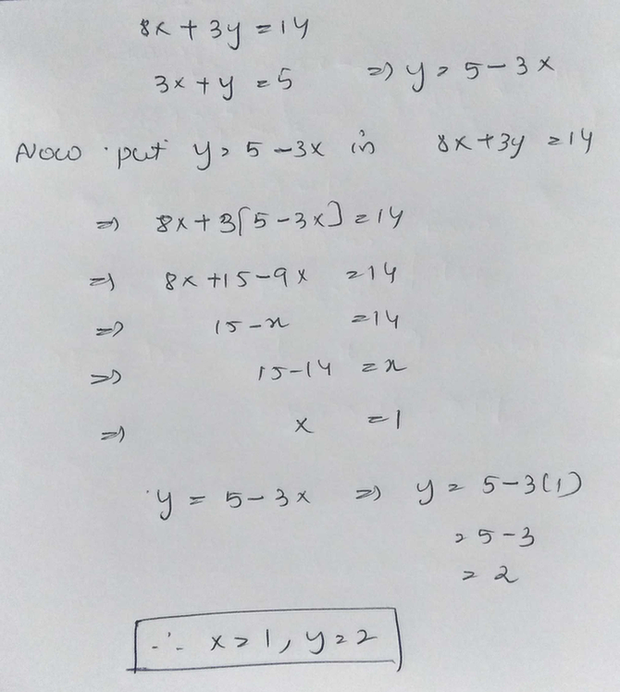 8x + 3y = 14
3x + y = 5 => y = 5 - 3x
Now put y = 5 - 3x in 8x + 3y = 14
=> 8x + 3[5 - 3x] = 14
=> 8x + 15 - 9x = 14
=> 15 - x = 14
=> 15 - 14 = x
=> x = 1
y = 5 - 3x => y = 5 - 3(1)
= 5 - 3
= 2
∴ x = 1, y = 2